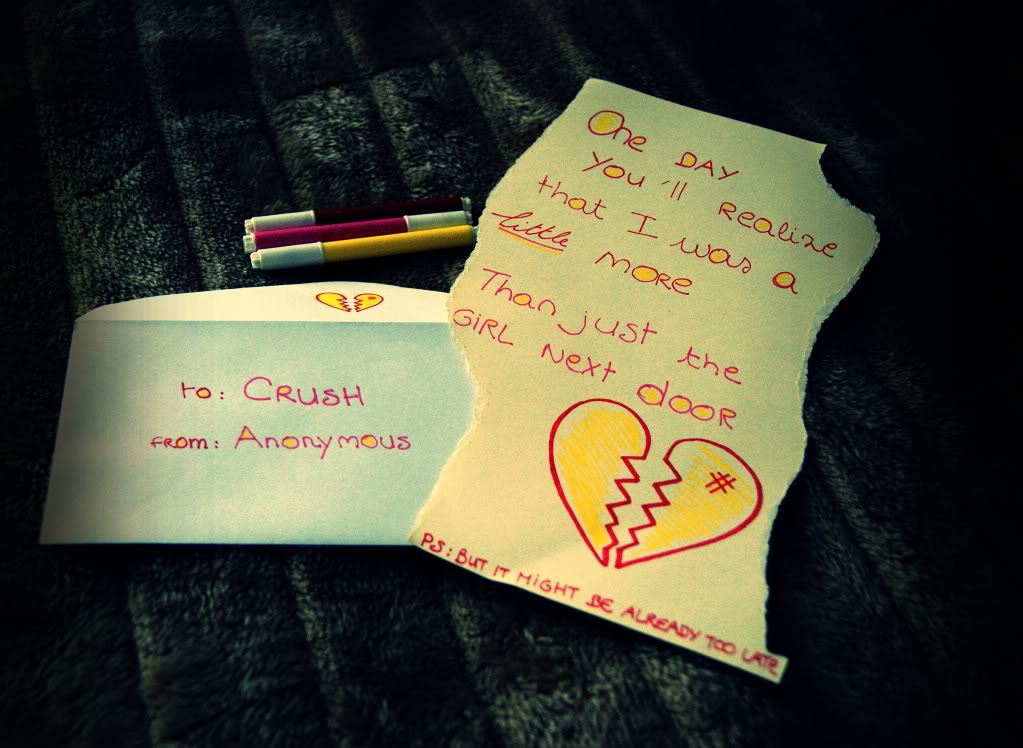 to: CRUSH
FROM: Anonymous
One DAY
You'll REALIZE
that I was a
little MORE
Than just the
GiRL Next dooR
#
PS: BUT IT MIGHT BE ALREADY TOO LATE